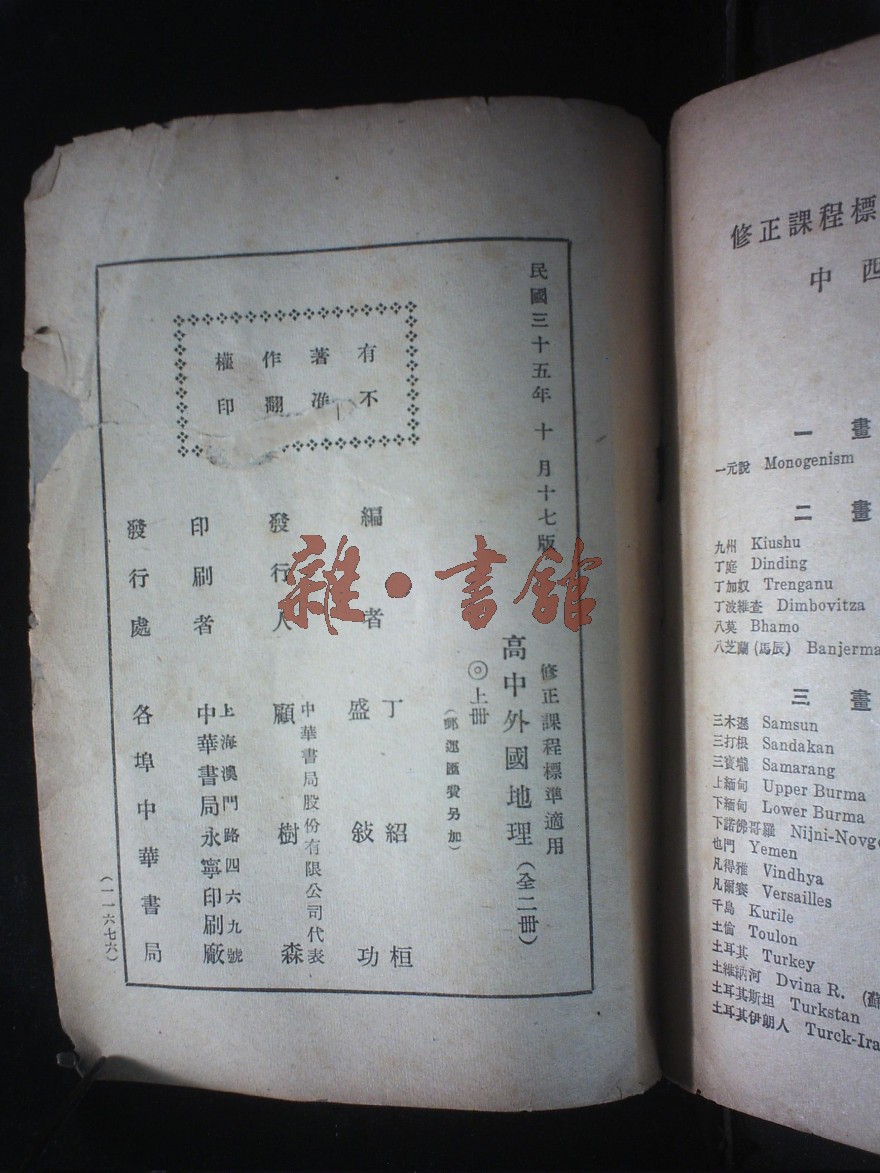 民國三十五年十月十七版
修正課程標準適用
高中外國地理(全二冊)
◎上冊
(郵運匯費另加)
有著作權
不准翻印
編者
丁紹桓
盛敍功
發行人
中華書局股份有限公司代表
顧樹森
印刷者
上海澳門路四六九號
中華書局永寧印刷廠
發行處
各埠中華書局
(一一六七六)
雜·書館
修正課程標
中西
一畫
一元說 Monogenism
二畫
九州 Kiushu
丁庭 Dinding
丁加奴 Trenganu
丁波維查 Dimbovitza
八莫 Bhamo
八芝蘭(馬辰) Banjerma
三畫
三木遜 Samsun
三打根 Sandakan
三寶壠 Samarang
上緬甸 Upper Burma
下緬甸 Lower Burma
下諾佛哥羅 Nijni-Novgo
也門 Yemen
凡得雅 Vindhya
凡爾賽 Versailles
千島 Kurile
土倫 Toulon
土耳其 Turkey
土維納河 Dvina R. (蘇
土耳其斯坦 Turkstan
土耳其伊朗人 Turck-Ira